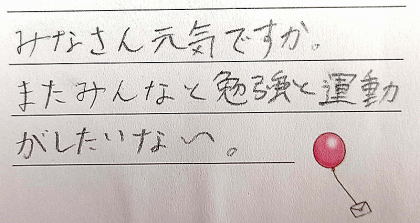 みなさん元気ですか。
またみんなと勉強と運動
がしたいない。